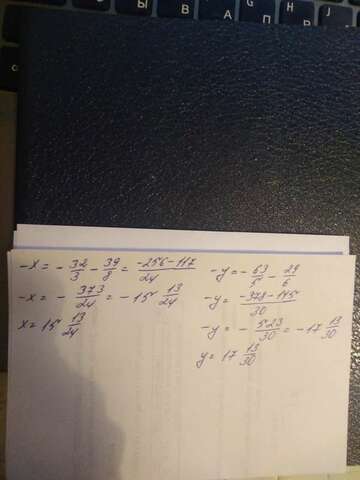 Ы В А П Н J
-x = - 32/3 - 39/8 = -256-117/24
-x = - 373/24 = -15 13/24
x = 15 13/24
-y = - 63/5 - 29/6
-y = -378-145/30
-y = - 523/30 = -17 13/30
y = 17 13/30